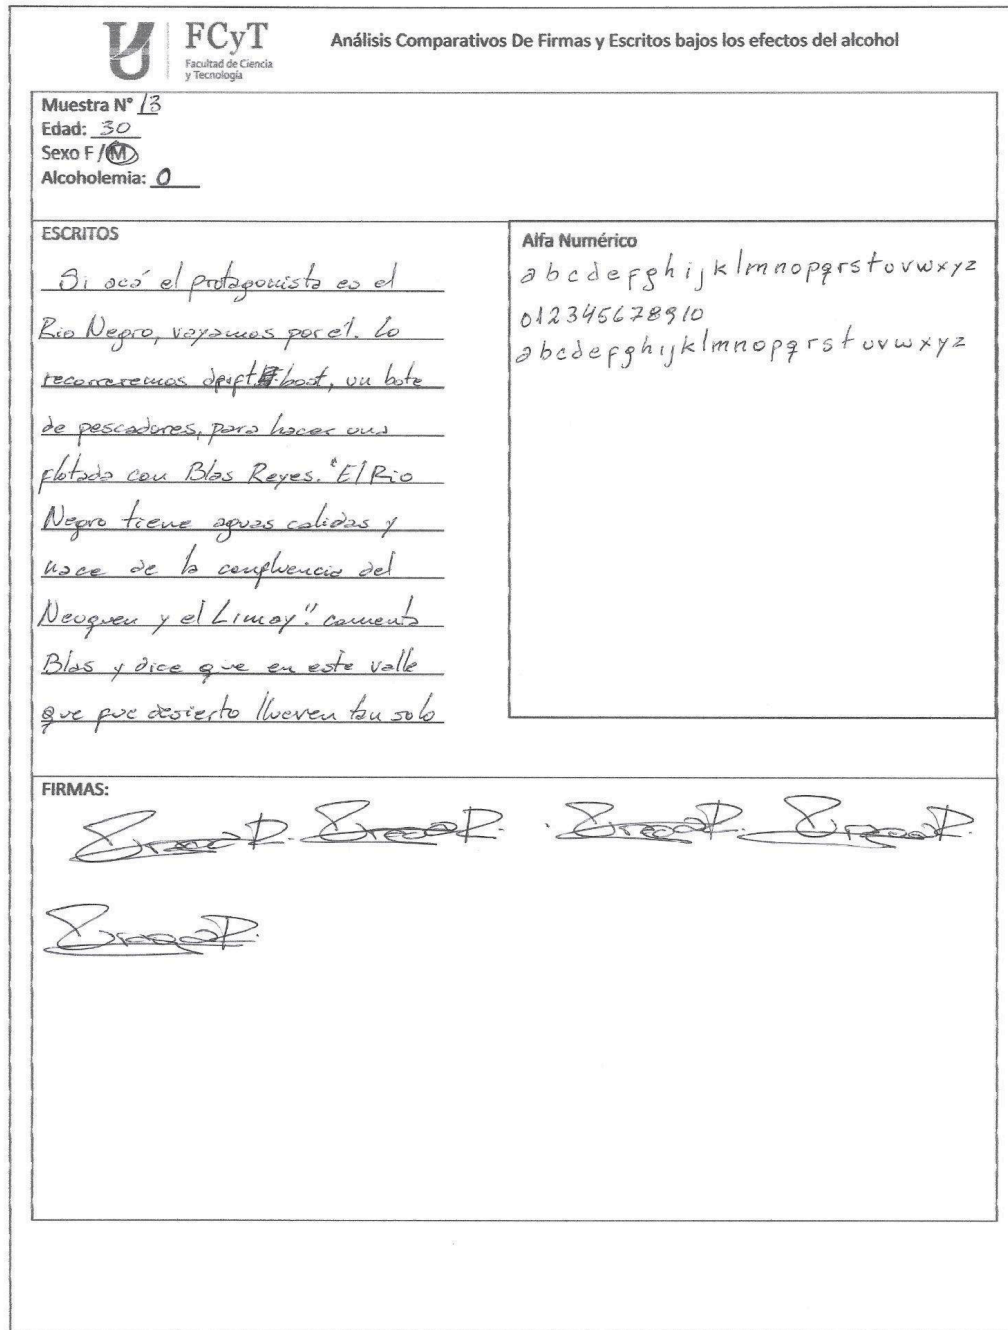 FCyT
Facultad de Ciencia
y Tecnología
Análisis Comparativos De Firmas y Escritos bajos los efectos del alcohol
Muestra N° 13
Edad: 30
Sexo F / M
Alcoholemia: 0
ESCRITOS
Si acá el protagonista es el
Rio Negro, vayamos por el. Lo
recorreremos boat, un bote
de pescadores, para hacer una
flotada con Blas Reyes. "El Rio
Negro tiene aguas calidas y
nace de la confluencia del
Neuquen y el Limay". comenta
Blas y dice que en este valle
que fue desierto llueven tan solo
Alfa Numérico
a b c d e f g h i j k l m n o p q r s t u v w x y z
0 1 2 3 4 5 6 7 8 9 10
a b c d e f g h i j k l m n o p q r s t u v w x y z
FIRMAS: